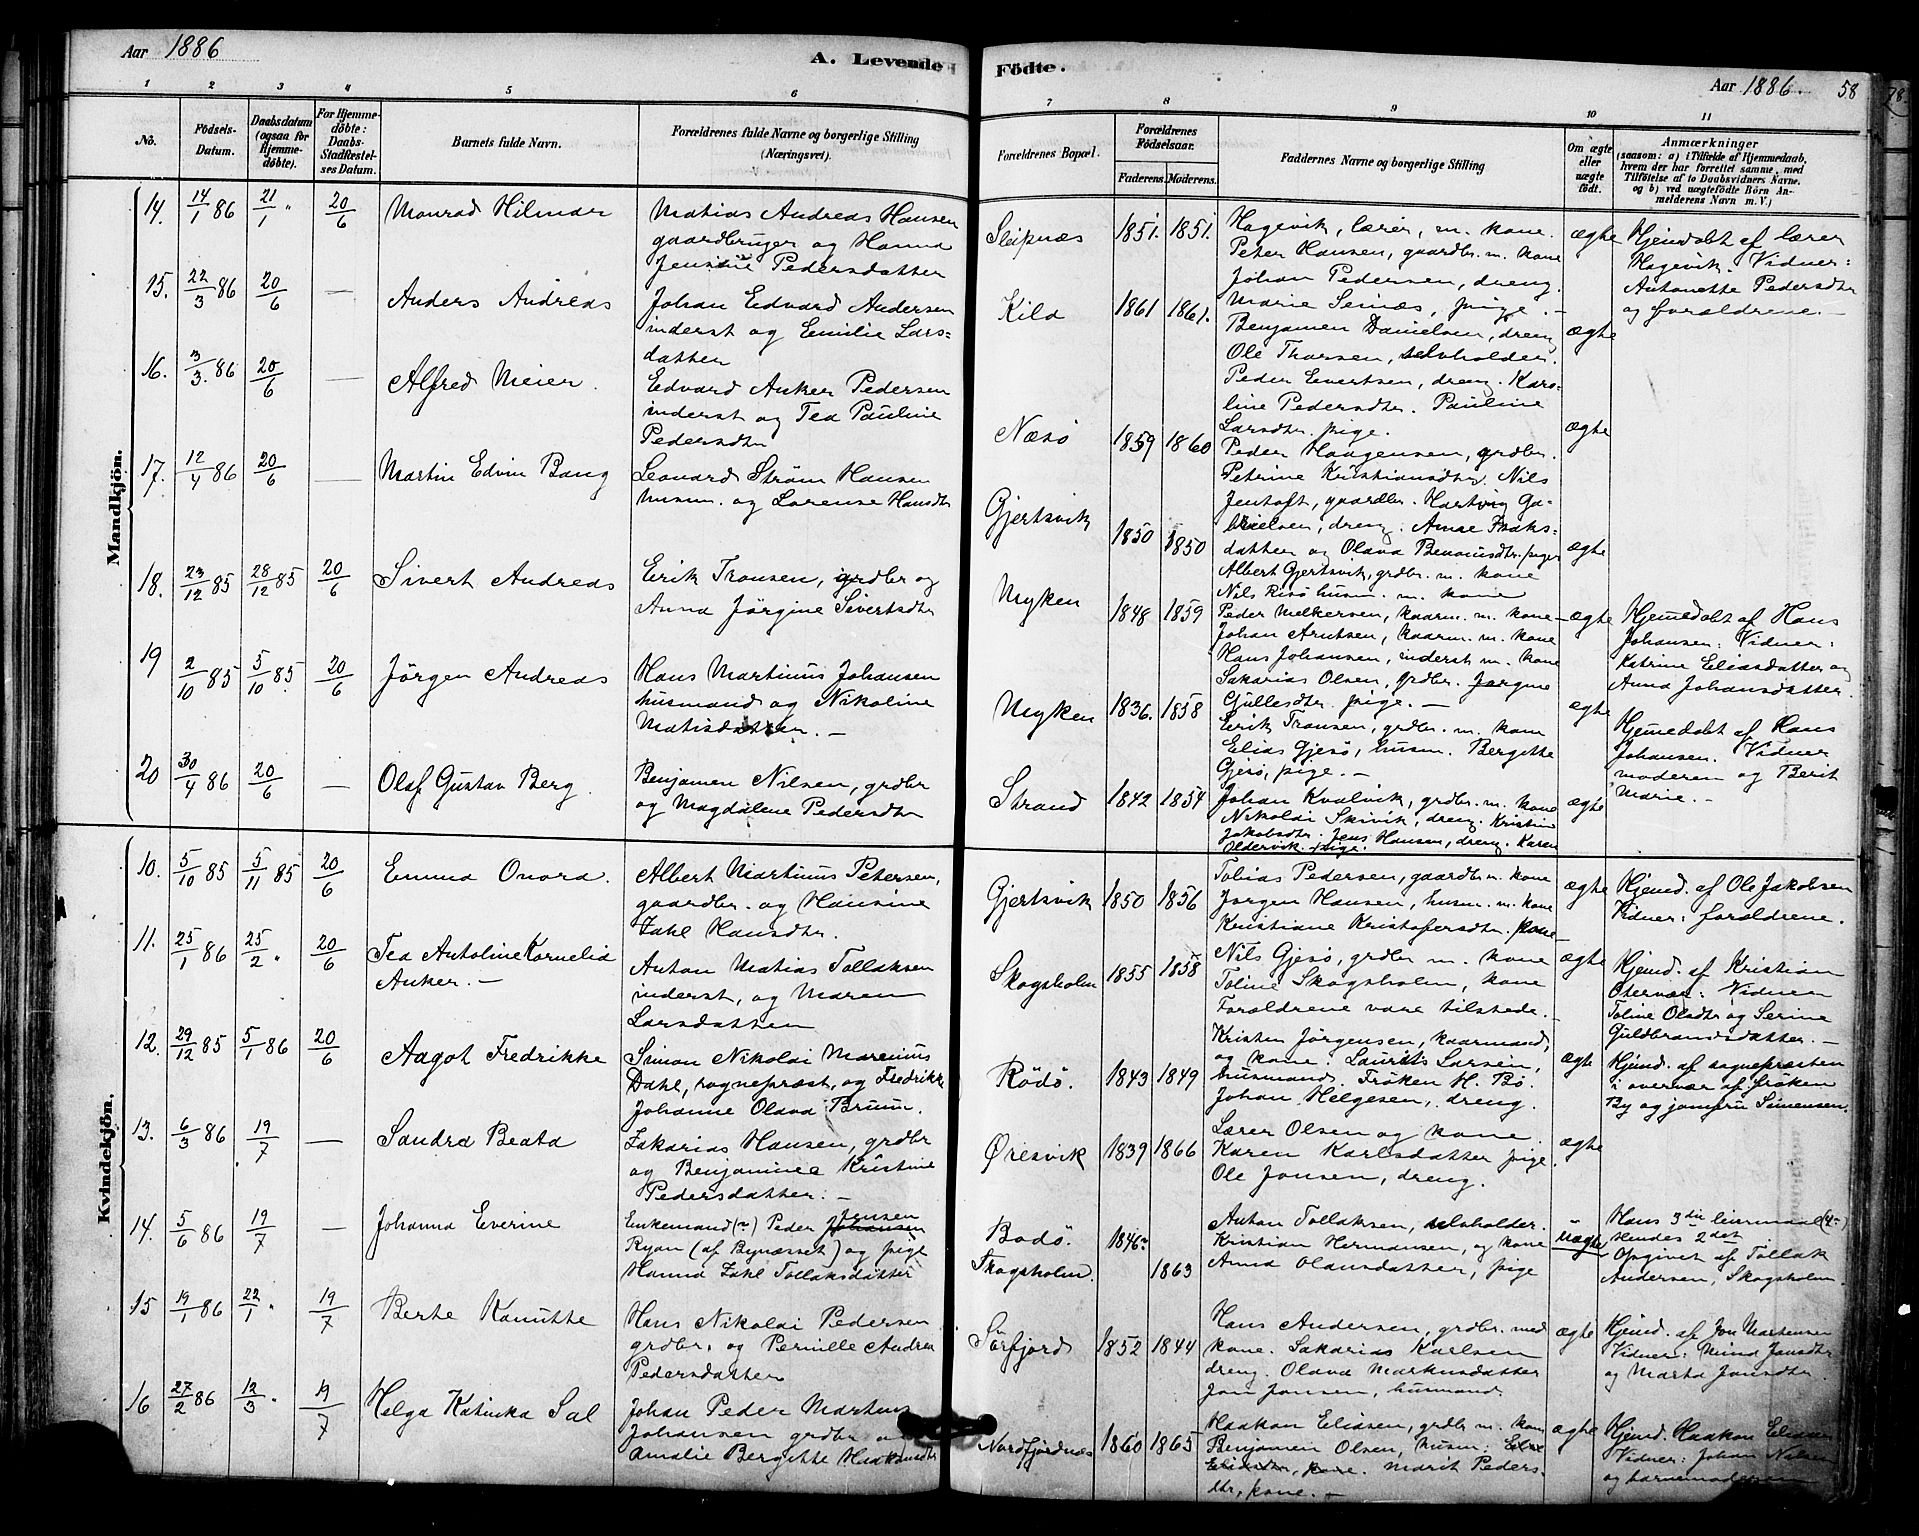 Aar 1886
A. Levende
1 2 3 4 5 6
No.
Födsels-
Datum.
Daabsdatum
(ogsaa for
Hjemme-
döbte).
For Hjemme-
döbte:
Daabs-
Stadfæstel-
ses Datum.
Barnets fulde Navn.
Forældrenes fulde Navne og borgerlige Stilling
(Næringsvei).
Mandkjön.
14. 14/1 86 21/1 " 20/6 Monrad Hilmar
Matias Andreas Hansen
gaardbruger og Hanna
Jensine Pedersdatter
15. 22/3 86 20/6 — Anders Andreas
Johan Edvard Andersen
inderst og Emilie Lars-
datter
16. 3/3. 86 20/6 — Alfred Meier.
Edvard Anker Pedersen
inderst og Tea Pauline
Pedersdtr
17. 12/4 86 20/6 — Martin Edvin Bang
Leonard Strøm Hansen
husm. og Lorense Hansdtr
18. 23/12 85 28/12 85 20/6 Sivert Andreas
Erik Transen, grdbr og
Anna Jörgine Sivertsdtr
19 2/10 85 5/10 85. 20/6 Jörgen Andreas
Hans Martinus Johansen
husmand og Nikoline
Matisdatter. —
20 30/4 86 20/6 — Olaf Gustav Berg.
Benjamen Nilsen, grdbr
og Magdalene Pedersdtr
Kvindekjön.
10. 5/10 85 5/11 85 20/6 Emma Onora.
Albert Martinus Petersen,
gaardbr. og Hansine
Zahl Hansdtr.
11. 25/1 86 25/2 " 20/6 Tea Antoline Kornelia
Anker. —
Anton Matias Tollaksen
inderst, og Maren
Larsdatter
12. 29/12 85 5/1 86 20/6 Aagot Fredrikke
Simon Nikolai Marenius
Dahl, sognepræst, og Fredrikke
Johanne Olava Bruun.
13. 6/3 86 19/7 — Sandra Beata
Zakarias Hansen, grdbr
og Benjaminea Kristine
Pedersdatter. —
14. 5/6 86 19/7 — Johanna Everine
Enkemand (~) Peder Johansen Jensen
Ryan (af Bynæsset) og pige
Hanna Zahl Tollaksdatter
15 19/1 86 22/1 " 19/7 Berte Kanutte
Hans Nikolai Pedersen
grdbr. og Pernille Andrea
Pedersdatter
16 27/2 86 12/3 " 19/7 Helga Katinka Sal
Johan Peder Martens
Johansen grdbr og
Amalie Bergitte Haakonsdtr
Födte.
Aar 1886. 58
7 8 9 10 11
Forældrenes Bopæl.
Forældrenes
Födselsaar.
Faderens. Moderens.
Faddernes Navne og borgerlige Stilling
Om ægte
eller
uægte
födt.
Anmærkninger
(saasom: a) i Tilfælde af Hjemmedaab,
hvem der har forrettet samme, med
Tilföielse af to Daabsvidners Navne,
og b) ved uægtefödte Börn An-
melderens Navn m. V.)
Sleipnæs 1851. 1851.
Hagevik, lærer, m. kone.
Peter Hansen, gaardbr. m. kone
Johan Pedersen, dreng.
ægte
Hjemdøbt af lærer
Hagevik. Vidner:
Antonette Pedersdtr
og forældrene. —
Kila 1861 1861.
Marie Seinæs, pige. —
Benjamen Danielsen, dreng
Ole Tharsen, selvholder.
ægte
Peder Evertsen, dreng. Karo-
line Pedersdtr. Pauline
Larsdtr. pige.
Næsö 1859 1860 ægte
Peder Haagensen, grdbr.
Petrine Kristiansdtr. Nils
Jentoft, gaardbr. Hartvig Ga-
brielsen, dreng. Anne Isaks-
datter og Olava Benoniusdtr. piger
Gjertsvik 1850 1850 ægte
Albert Gjertsvik, grdbr. m. kone
Nils Risö husm. m. kone
Myken 1848 1859
Peder Melkersen, kaarm. m. kone —
Johan Arntsen, kaarm. m. kone
Hans Johansen, inderst m. kone
Sakarias Olsen, grdbr. Jørgine
Gullesdtr. pige. —
ægte
Hjemedøbt af Hans
Johansen: Vidner:
Katrine Eliasdatter og
Anna Johansdatter.
Myken 1836. 1858
Erik Transen, grdbr. m. kone
Elias Gjesö, husm. Bergitte
Gjesö, pige. —
ægte
Hjemedøbt af Hans
Johansen. Vidner
moderen og Berit
Marie. —
Strand 1842 1854
Johan Kvalvik, grdbr. m. kone
Nikolai Skivik, dreng. Kristine
Jakobsdtr. Jens Hansen, dreng. Karen
Oldervik. pige.
ægte
Gjertsvik 1850 1856
Tobias Pedersen, gaardbr m. kone
Jørgen Hansen, husm. m. kone
Kristiane Kristofersdtr. kone
ægte
Hjemd. af Ole Jakobsen
Vidner: forældrene.
Skogsholm 1855 1858
Nils Gjesö, grdbr m. kone
Toline Skogsholm, kone
Forældrene vare tilstede. —
ægte
Hjemd. af Kristian
Otervær: Vidner
Toline Olsdtr og Serine
Guldbrandsdatter. —
Rödö. 1843 1849
Kristen Jørgensen, kaarmand,
og kone. Laurits Larsen,
husmand. Frøken H. Bö.
Johan Helgesen, dreng.
ægte
Hjemd. af sognepræsten
i overvær af frøken
By og jomfru Simensen.
Øresvik 1839 1866
Lærer Olsen og kone.
Karen Karlsdatter pige.
Ole Jonsen, dreng.
ægte
Bodö. 1846~
Skogsholm. 1863
Anton Tollaksen, selvholder.
Kristian Hermansen, og kone
Anna Olausdatter, pige
"
uægte
Hans 3die leiermaal (~)
Hendes 2det
Opgivet af Tollak
Andersen, Skogsholm.
Sörfjord 1852 1844
Hans Andersen, grdbr. med
kone. Sakarias Karlsen
dreng. Olava Markusdatter
Jon Jonsen, husmand.
ægte
Hjemd. af Jon Martensen
Vidner: Mina Jansdtr
og Marta Jonsdtr.
Nordfjordnæs 1860 1865
Haakon Eliasen, grdbr m. kone
Benjamen Olsen, husm:
kone. Marit Peders-
dtr, kone. —
ægte
Hjemd. Haakon Eliasen
Vidner: Johan Nilsen
og barnemoderen